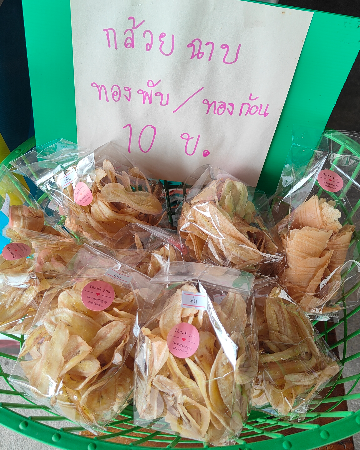 กล้วย ฉาบ
ทองพับ / ทองก้อน
10 บ.